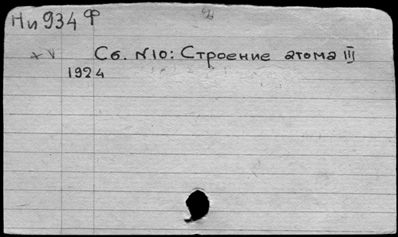 Ни 934 Ф
Сб. N10: Строение атома III
1924